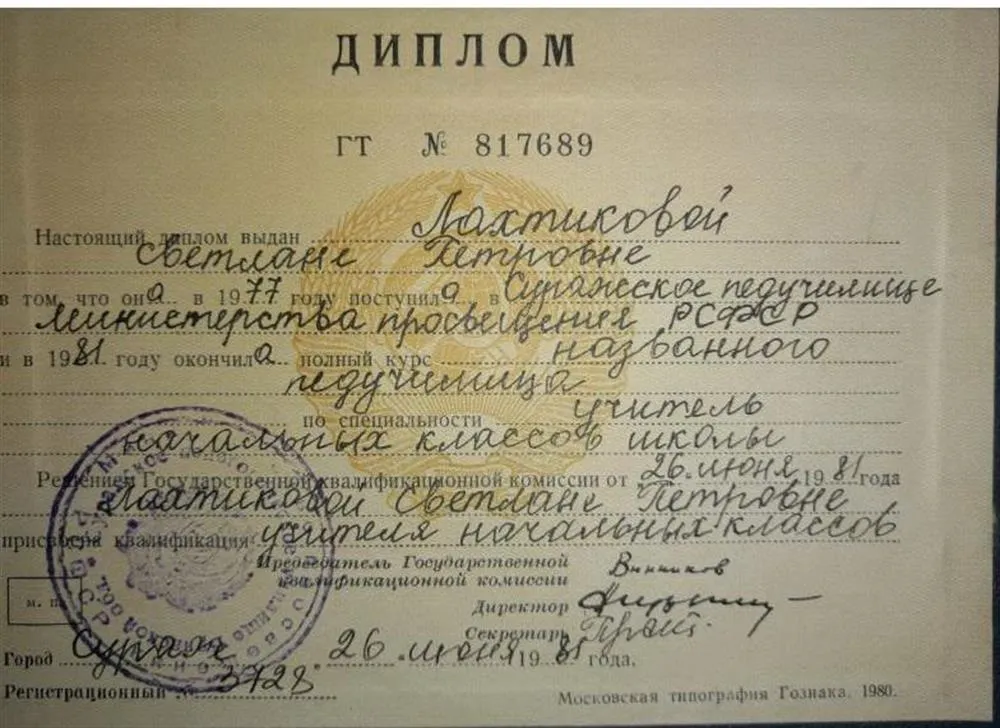 ДИПЛОМ
ГТ № 817689
Настоящий диплом выдан Лахтиковой
Светлане Петровне
в том, что она в 1977 году поступила в Суражское педучилище
Министерства просвещения РСФСР
и в 1981 году окончила полный курс названного
педучилища
по специальности учитель
начальных классов школы
Решением Государственной квалификационной комиссии от 26 июня 1981 года
Лахтиковой Светлане Петровне
присвоена квалификация учителя начальных классов
Председатель Государственной
квалификационной комиссии Винников
Директор
Секретарь
м. п.
Город Сураж 26 июня 1981 года.
Регистрационный № 3728
Московская типография Гознака. 1980.